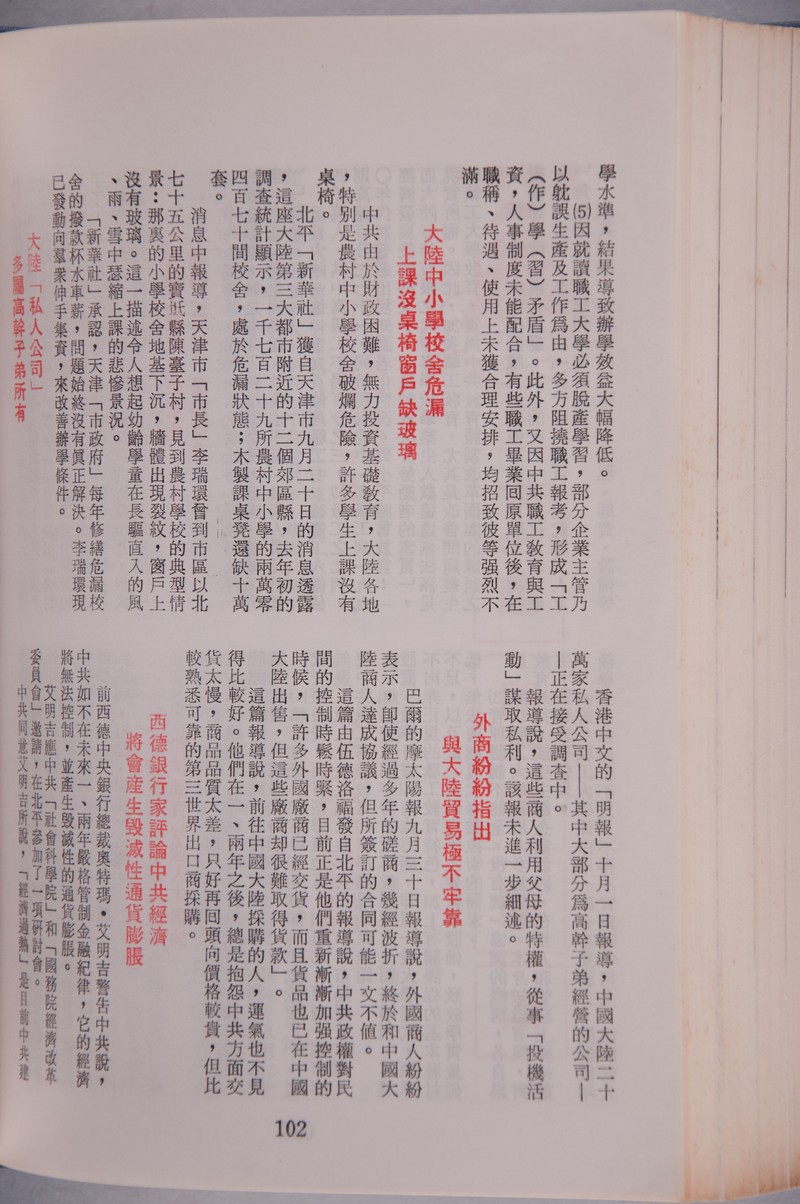 學水準，結果導致辦學效益大幅降低。
⑸因就讀職工大學必須脫產學習，部分企業主管乃
以躭誤生產及工作爲由，多方阻撓職工報考，形成「工
（作）學（習）矛盾」。此外，又因中共職工教育與工
資，人事制度未能配合，有些職工畢業回原單位後，在
職稱、待遇、使用上未獲合理安排，均招致彼等强烈不
滿。
大陸中小學校舍危漏
上課沒桌椅窗戶缺玻璃
中共由於財政困難，無力投資基礎教育，大陸各地
，特別是農村中小學校舍破爛危險，許多學生上課沒有
桌椅。
北平「新華社」獲自天津市九月二十日的消息透露
，這座大陸第三大都市附近的十二個郊區縣，去年初的
調查統計顯示，一千七百二十九所農村中小學的兩萬零
四百七十間校舍，處於危漏狀態；木製課桌凳還缺十萬
套。
消息中報導，天津市「市長」李瑞環曾到市區以北
七十五公里的寶坻縣陳臺子村，見到農村學校的典型情
景：那裏的小學校舍地基下沉，牆體出現裂紋，窗戶上
沒有玻璃。這一描述令人想起幼齡學童在長驅直入的風
、雨、雪中瑟縮上課的悲慘景況。
「新華社」承認，天津「市政府」每年修繕危漏校
舍的撥款杯水車薪，問題始終沒有眞正解決。李瑞環現
已發動向羣衆伸手集資，來改善辦學條件。
大陸「私人公司」
多屬高幹子弟所有
香港中文的「明報」十月一日報導，中國大陸二十
萬家私人公司——其中大部分爲高幹子弟經營的公司—
—正在接受調查中。
報導說，這些商人利用父母的特權，從事「投機活
動」謀取私利。該報未進一步細述。
外商紛紛指出
與大陸貿易極不牢靠
巴爾的摩太陽報九月三十日報導說，外國商人紛紛
表示，卽使經過多年的磋商，幾經波折，終於和中國大
陸商人達成協議，但所簽訂的合同可能一文不値。
這篇由伍德洛福發自北平的報導說，中共政權對民
間的控制時鬆時緊，目前正是他們重新漸漸加强控制的
時候，「許多外國廠商已經交貨，而且貨品也已在中國
大陸出售，但這些廠商却很難取得貨款」。
這篇報導說，前往中國大陸採購的人，運氣也不見
得比較好。他們在一、兩年之後，總是抱怨中共方面交
貨太慢，商品品質太差，只好再回頭向價格較貴，但比
較熟悉可靠的第三世界出口商採購。
西德銀行家評論中共經濟
將會產生毀滅性通貨膨脹
前西德中央銀行總裁奧特瑪・艾明吉警告中共說，
中共如不在未來一、兩年嚴格管制金融紀律，它的經濟
將無法控制，並產生毀滅性的通貨膨脹。
艾明吉應中共「社會科學院」和「國務院經濟改革
委員會」邀請，在北平參加了一項研討會。
中共同意艾明吉所說，「經濟過熱」是目前中共建
102